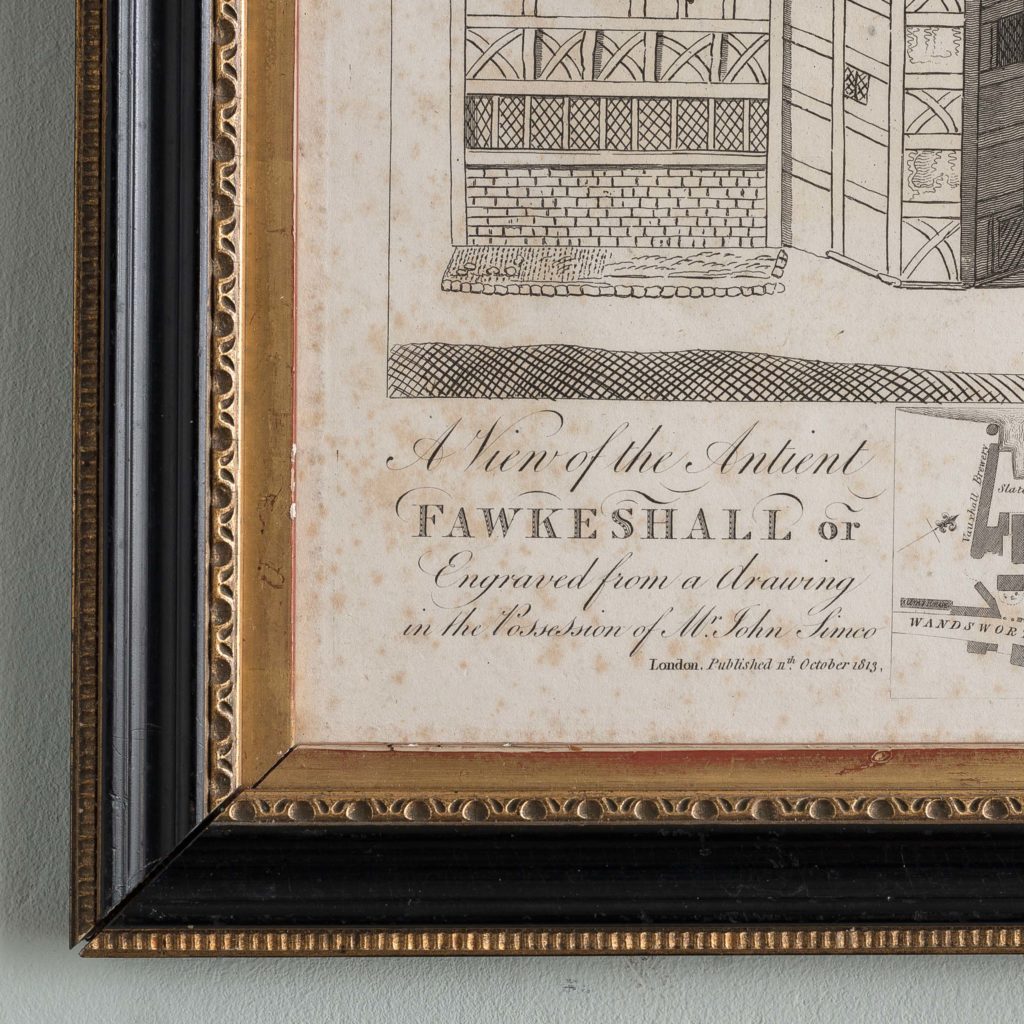 A View of the Antient
FAWKESHALL or
Engraved from a drawing
in the Possession of Mr. John Simco
London, Published 11th. October 1813,
Vauxhall Brewery
Slate
WANDSWOR